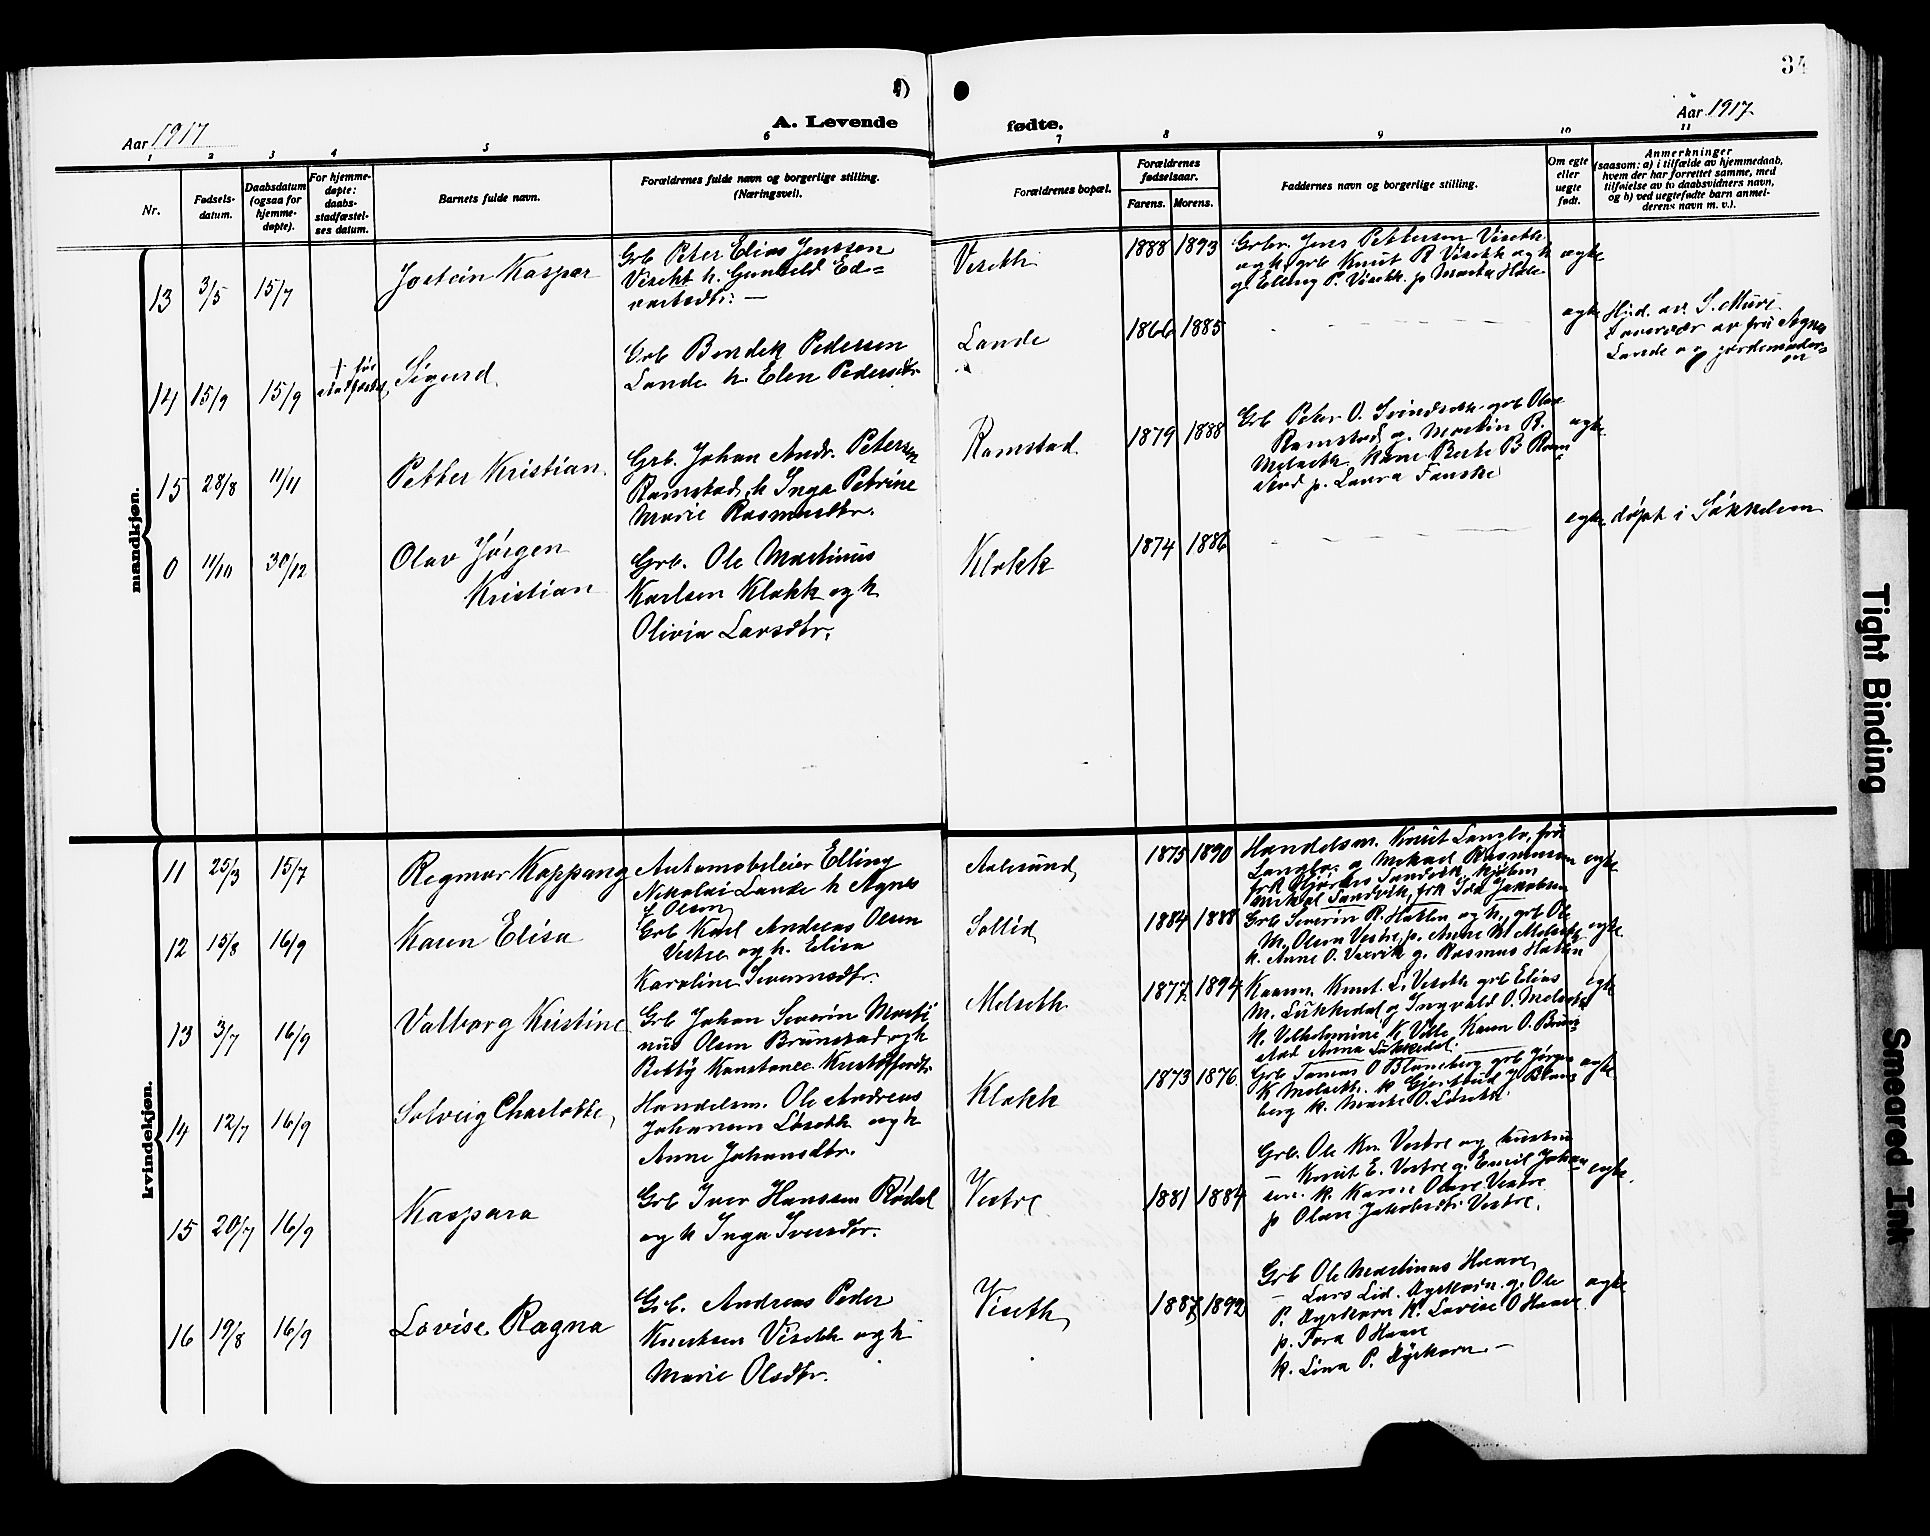 34
Aar 1917
A. Levende
fødte.
Aar 1917
1 2 3 4 5 6 7 8 9 10 11
Nr.
Fødsels-
datum.
Daabsdatum
(ogsaa for
hjemme-
døpte).
For hjemme-
døpte:
daabs-
stadfæstel-
ses datum.
Barnets fulde navn.
Forældrenes fulde navn og borgerlige stilling.
(Næringsvei).
Forældrenes bopæl.
Forældrenes
fødselsaar.
Farens. Morens.
Faddernes navn og borgerlige stilling.
Om egte
eller
uegte
født.
Anmerkninger
(saasom: a) i tilfælde av hjemmedaab,
hvem der har forrettet samme, med
tilføielse av to daabsvidners navn,
og b) ved uegtefødte barn anmel-
derens navn m. v.).
mandkjøn.
13 3/5 15/7
Jostein Kaspar
Grb Peter Elias Jenssen
Viseth h. Gunhild Ed-
vartsdtr. —
Viseth
1888 1893
Grbr. Jens Pettersen Viseth
og h, grb Knut P. Viseth og h
g. Elling P. Viseth. p Marta Hole
egte
14 15/9 15/9
† før
stadfæstet
Sigurd
Grb Bendik Pedersen
Lande h. Elen Pedersdtr
Lande
1866 1885
egte
Hjd. av S. Mure
i overvær av fru Agnes
Lande og jordemoder-
en
15 28/8 11/11
Petter Kristian
Grb. Johan Andr. Petersen
Ramstad, h Inga Petrine
Marie Rasmusdtr.
Ramstad
1879 1888
Grb Peter O. Svindseth grb Olav
Ramstad g. Martin R.
Melseth kone Berte B Ram-
stad p. Laura Fauske
egte
0 11/10 30/12
Olav Jørgen
Kristian
Grb. Ole Martinus
Karlsen Klokk og h
Olivia Larsdtr.
Klokk
1874 1886
egte
døpt i Søkkelven
kvindekjøn.
11 25/3 15/7
Regmor Koppang
Automobileier Elling
Nikolai Lande h Agnes
f Olsen
Aalesund
1875 1890
Handelsm. Knut Langlo, fru
Langlo. g Mikael Rasmussen
frk Hjørdis Sandvik, kjøbm
Mikal Sandvik, frk Ida Jakobsen
egte
12 15/8 16/9
Karen Elisa
Grb Karl Andreas Olsen
Vestre og h. Elisa
Karoline Severinsdtr.
Sollid
1884 1888
Grb Severin R. Hatlen og h., grb Ole
M. Olsen Vestre, p. Anne K Melseth
k. Anne O. g. Rasmus Hatlen
egte
13 3/7 16/9
Valborg Kristine
Grb Johan Severin Marti
nus Olsen Brunstad og h
Betzy Konstance Kristoffersdtr
Melseth
1877 1894
Kaarm. Knut L. Viseth grb Elias
M. Lukkedal g Ingvald O. Melseth
k. Vilhelmine K Velle Karen O. Brun-
stad Anna Lukkedal.
egte
14 12/7 16/9
Solveig Charlotte,
Handelsm. Ole Andreas
Johansen Løseth og h
Anne Johansdtr.
Klokk
1873 1876
Grb Tomas O Blomberg grb Jørgen
K Melseth k Gjertrud J Blom-
berg k. Marte O. Løseth.
egte
15 20/7 16/9
Kaspara
Grb Iver Hanssen Rødal
og h Inga Iversdtr.
Vestre
1881 1884
Grb. Ole Kn. Vestre og hustru
— Knut E. Vestre g. Emil Johan-
sen. k. Karen Olave Vestre
p Olave Jakobsdtr Vestre.
egte.
16 19/8 16/9
Lovise Ragna
Grb. Andreas Peder
Knutsen Viseth og h
Marie Olsdtr.
Viseth
1887 1892
Grb Ole Martinus Haave
— Lars Lid. Dyrkorn. g. Ole
P. Dyrkorn k. Lovise O Haave
p. Tora O Haave
k. Lina P. Dyrkorn. —
egte
Tight Binding
Smeared Ink